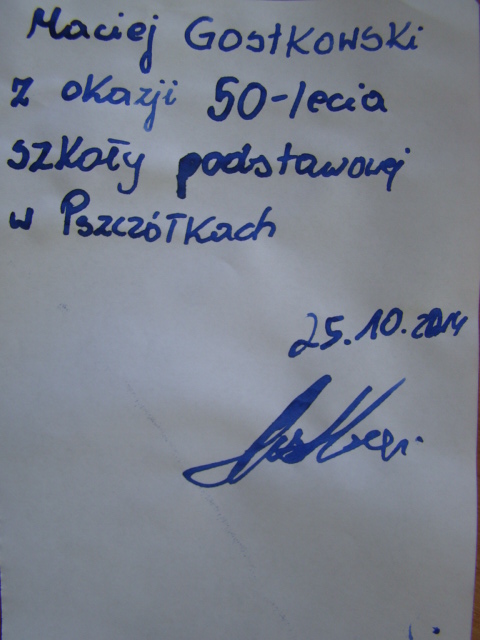 Maciej Gostkowski
z okazji 50-lecia
szkoły podstawowej
w Pszczółkach
25.10.2014